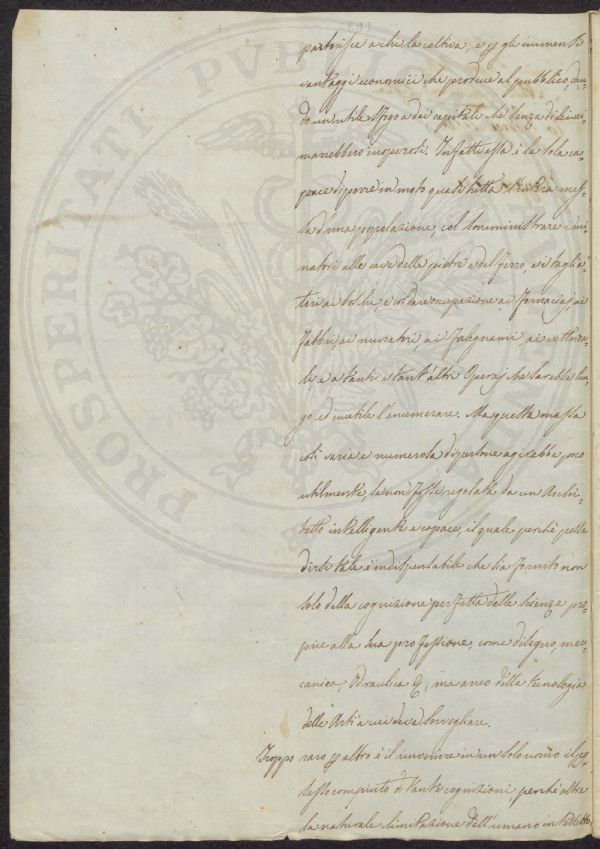 partorisce a chi la coltiva, e p gli immensi
vantaggi economici che produce al pubblico, dan-
do un utile sfogo a dei capitali che senza di lei ri-
marrebbero inoperosi. Infatti essa è la sola ca-
pace di porre in moto quasi tutta intera mas-
sa d'una popolazione, col somministrare
alle cave delle pietre e del ferro, e i taglia-
tori ai boschi, col dare occupazione ai Fornaciaj, ai
Fabbri, ai muratori, ai Falegnami, ai
e a tanti e tant'altri Operaj che sarebbe lun-
go ed inutile l'enumerare. Ma questa massa
così varia e numerosa di persone agirebbe poco
utilmente, se non fosse regolata da un Archi-
tetto intelligente e capace, il quale perchè possa
dirsi tale è indispensabile che sia fornito non
solo della cognizione perfetta delle scienze pro-
prie alla sua professione, come disegno, mec-
canica, Idraulica &; ma anco della tecnologia
delle Arti a cui deve sorvegliare.
Troppo raro p altro è il rinvenire in un solo uomo il pos-
sesso compiuto di tante cognizioni perchè oltre
la naturale limitazione dell'umano intelletto
PROSPERITATI PUBLICAE